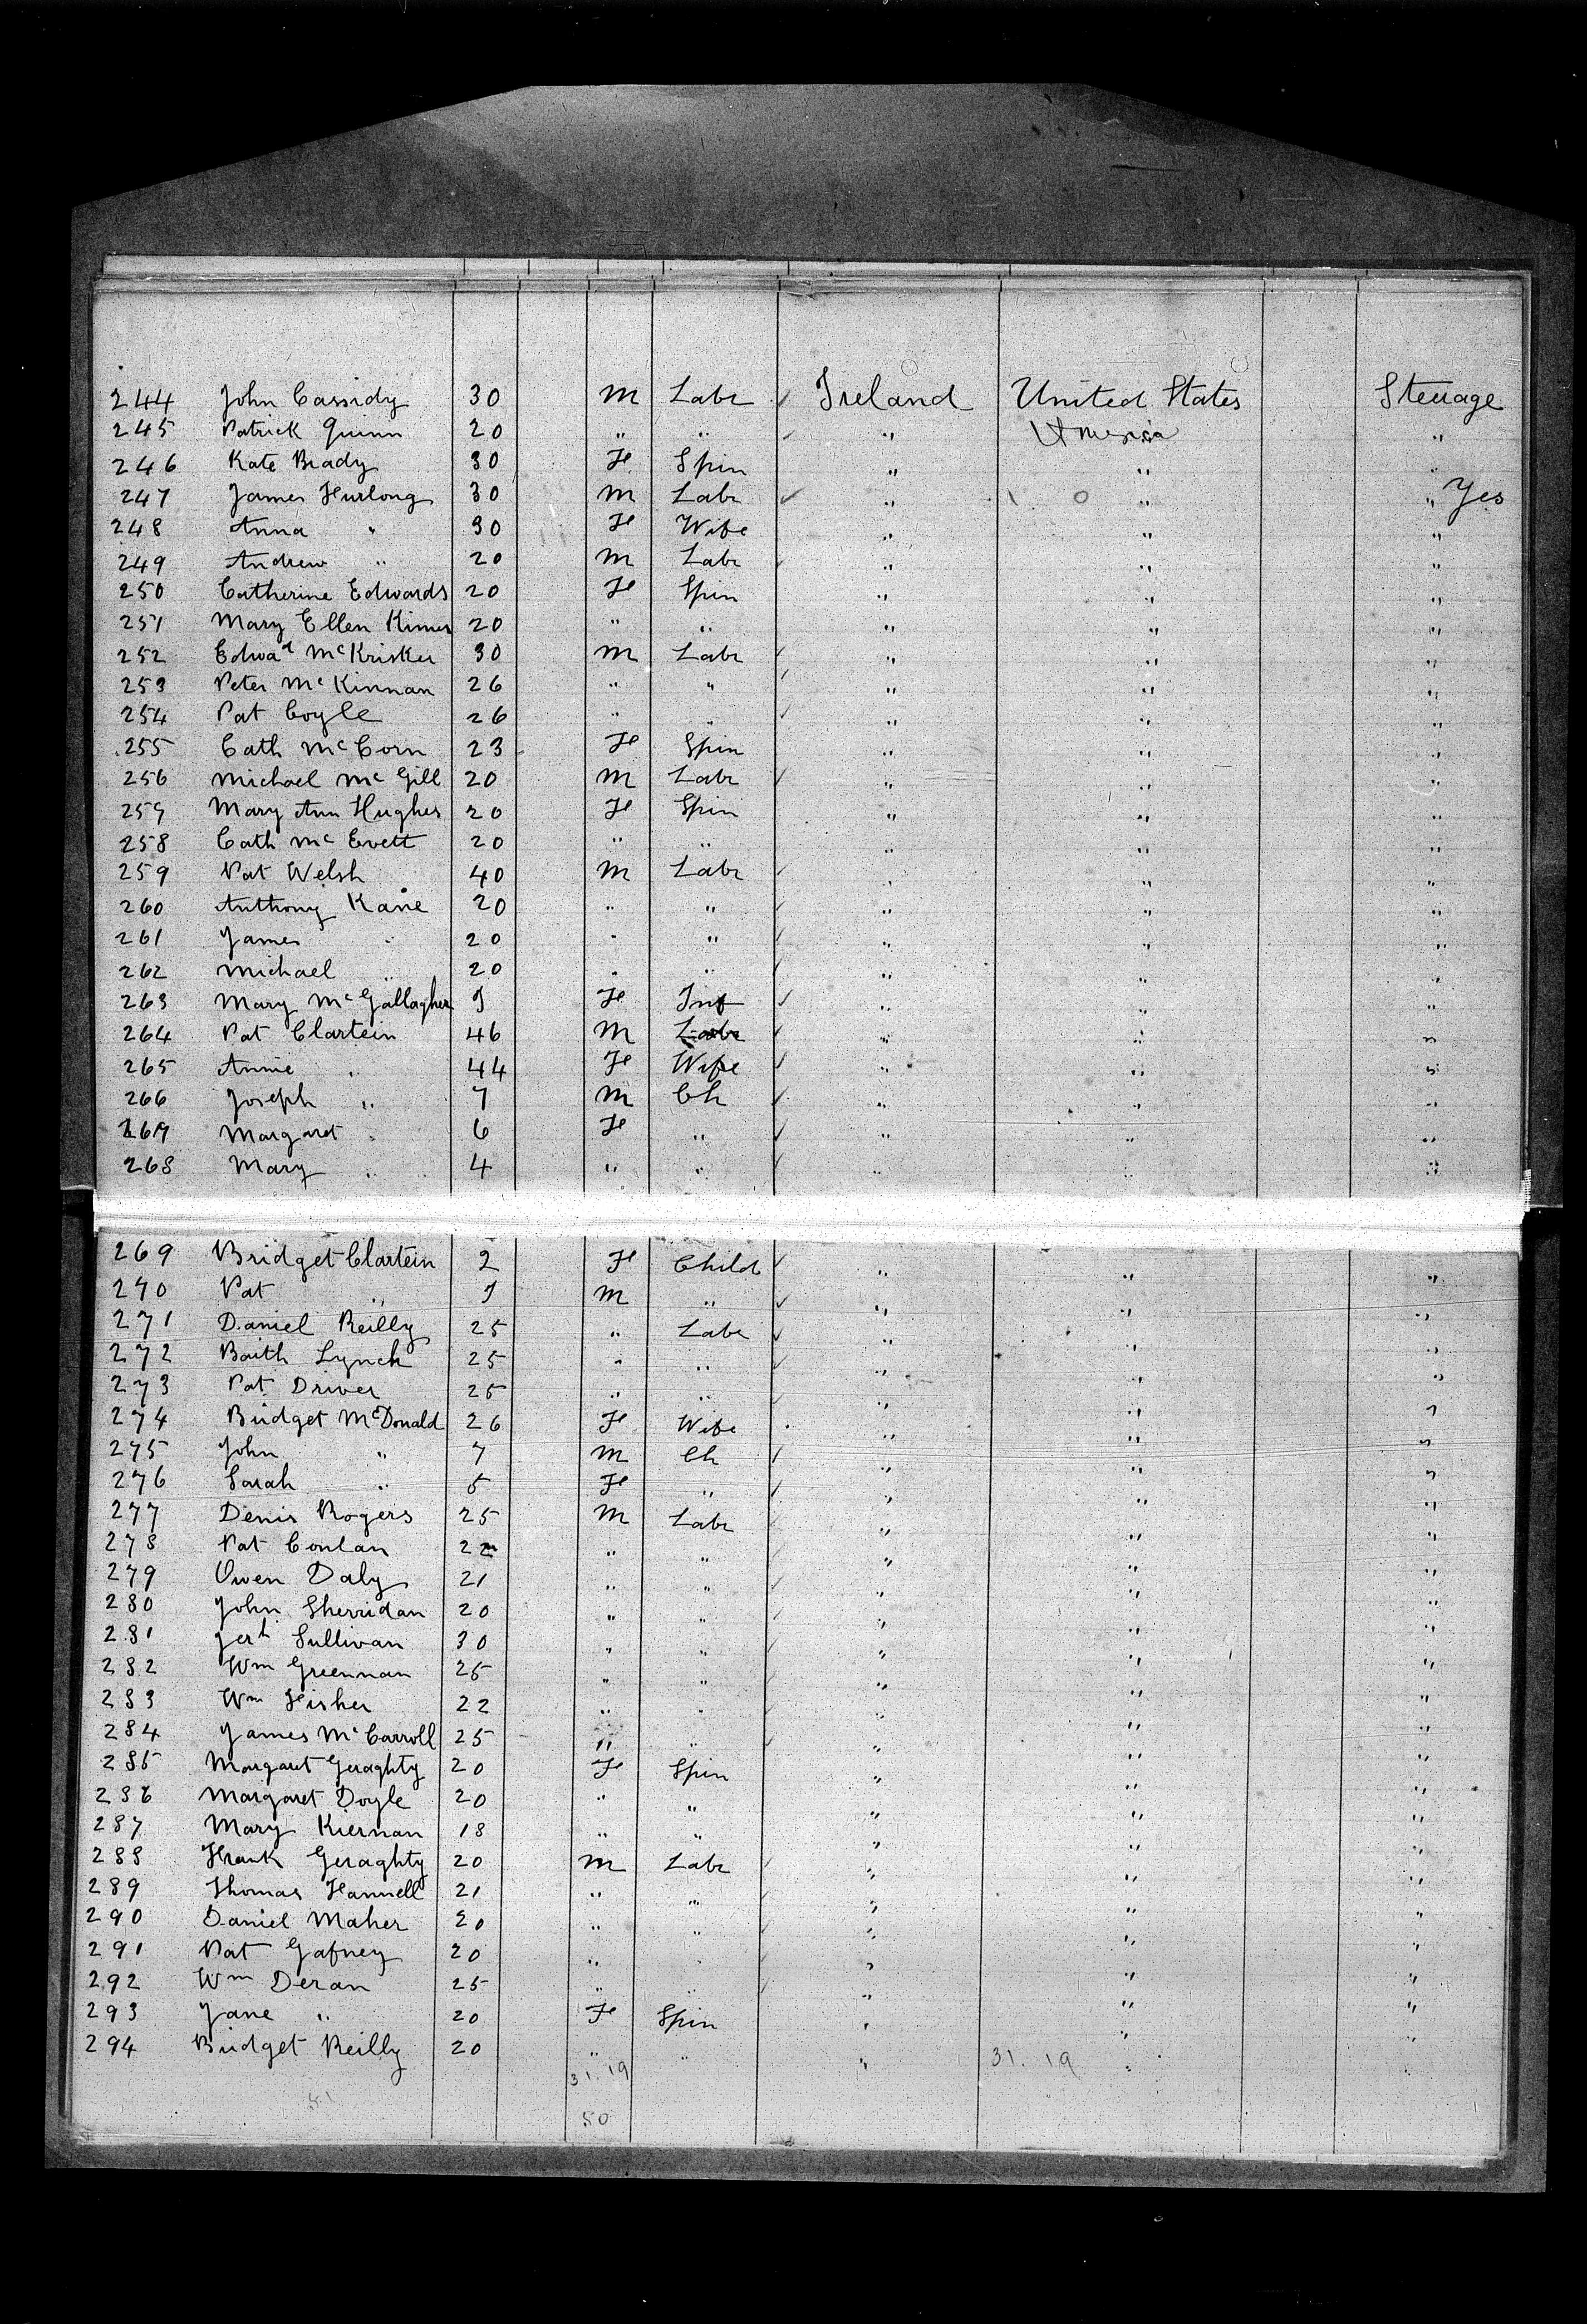 244 John Cassidy 30 M Labr ✓ Ireland United States Steerage
245 Patrick Quinn 20 " " ✓ " America "
246 Kate Brady 30 F Spin " " "
247 James Furlong 30 M Labr ✓ " " " Yes
248 Anna " 30 F Wife " " "
249 Andrew " 20 M Labr ✓ " " "
250 Catherine Edwards 20 F Spin " " "
251 Mary Ellen 20 " " " " "
252 Edwad McKrisker 30 M Labr ✓ " " "
253 Peter McKinnan 26 " " ✓ " " "
254 Pat Coyle 26 " " ✓ " " "
255 Cath McCorn 23 F Spin " " "
256 Michael McGill 20 M Labr ✓ " " "
257 Mary Ann Hughes 20 F Spin " " "
258 Cath McEvett 20 " " " " "
259 Pat Welsh 40 M Labr ✓ " " "
260 Anthony Kane 20 " " ✓ " " "
261 James " 20 " " ✓ " " "
262 Michael " 20 " " ✓ " " "
263 Mary McGallagher F Inf ✓ " " "
264 Pat Clartein 46 M Labr ✓ " " "
265 Annie " 44 F Wife ✓ " " "
266 Joseph " 7 M Ch ✓ " " "
267 Margaret " 6 F " ✓ " " "
268 Mary " 4 " " ✓ " " "
269 Bridget Clartein 2 F Child ✓ " " "
270 Pat " M " ✓ " " "
271 Daniel Reilly 25 " Labr ✓ " " "
272 Lynch 25 " " ✓ " " "
273 Pat Driver 25 " " ✓ " " "
274 Bridget McDonald 26 F Wife " " "
275 John " 7 M Ch ✓ " " "
276 Sarah " 5 F " ✓ " " "
277 Denis Rogers 25 M Labr ✓ " " "
278 Pat Conlan 22 " " ✓ " " "
279 Owen Daly 21 " " ✓ " " "
280 John Sherridan 20 " " ✓ " " "
281 Jerh Sullivan 30 " " ✓ " " "
282 Wm Greennan 25 " " ✓ " " "
283 Wm Fisher 22 " " ✓ " " "
284 James McCarroll 25 " " ✓ " " "
285 Margaret Geraghty 20 F Spin " " "
286 Margaret Doyle 20 " " " " "
287 Mary Kiernan 18 " " " " "
288 Frank Geraghty 20 M Labr ✓ " " "
289 Thomas Fannell 21 " " ✓ " " "
290 Daniel Maher 20 " " ✓ " " "
291 Pat Gafney 20 " " " " "
292 Wm Deran 25 " " ✓ " " "
293 Jane " 20 F Spin " " "
294 Bridget Reilly 20 " " " " "
31.19 31.19
50